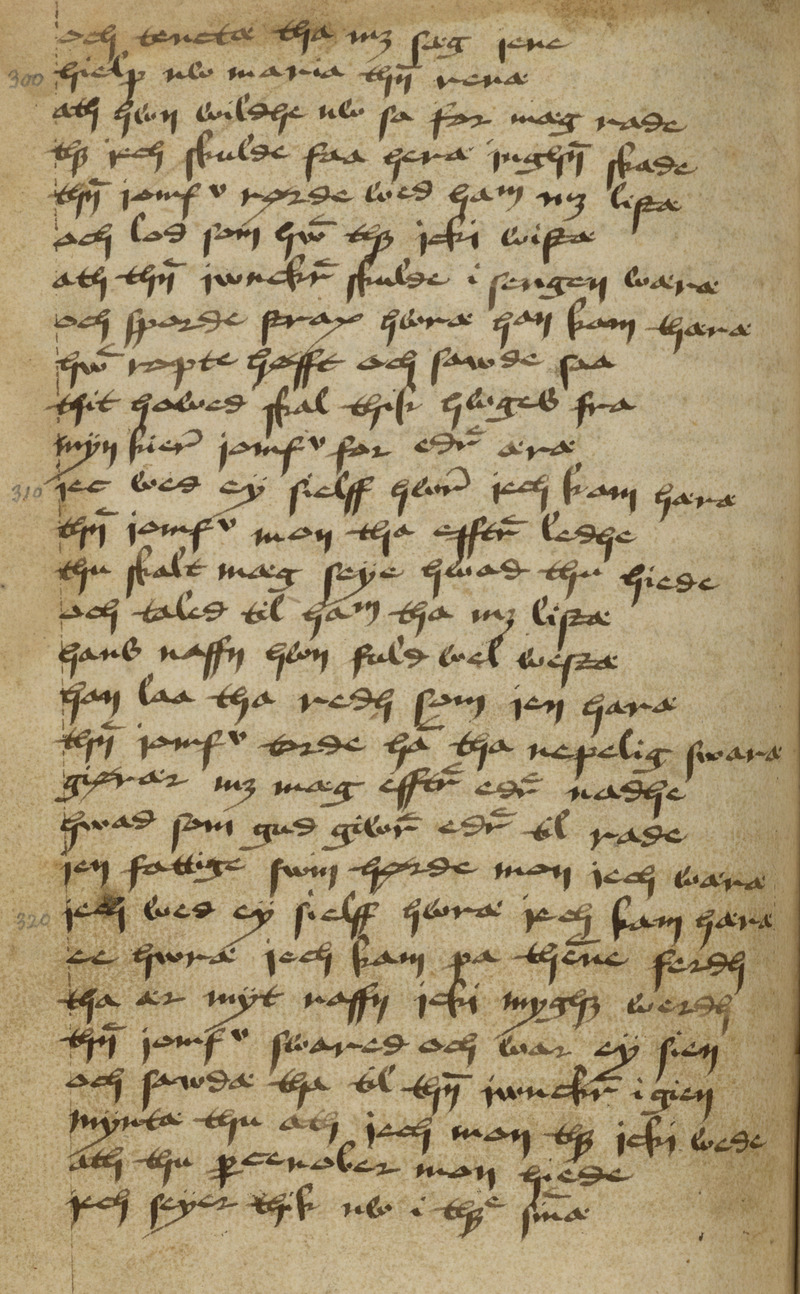 och tenctæ tha mꝫ sæg iene
300 hielp nw maria thn̄ renæ
ath hwn wildhe nw sa for mæg rade
thꝫ iech skulde faa heræ inghn̄ skade
thn̄ iomfv rørde wed ham mꝫ listæ
och lod som hw̄ thꝫ icki wistæ
ath thn̄ iwnckr̄ skulde i sengen wæræ
och sporde strax hworæ han kom thæræ
hw̄ ropte høfft och sawde saa
thit howed skal thik hwges fra
myn kier̄ iomfv for edr̄ æræ
310 iec wed ey sielff hwor̄ iech kam hæræ
thn̄ iomfv mon tha efftr̄ ledhe
thu skalt mæg seye hwad thu hiede
och taled til ham tha mꝫ listæ
hans naffn hwn fuld wel westæ
han laa tha redh som ien haræ
thn̄ iomfv torde hā tha nepelig swaræ
giørær mꝫ mæg efftr̄ edr̄ nadhe
hwad som gud giwr̄ edr̄ til rade
ien fattige swin hørde mon iech wæræ
320 iech wed ey sielff hworæ iech kam hæræ
ee hwræ iech kam pa thēne ferdh
tha ær myt naffn icki myghꝫ werdh
thn̄ iomfv swared och war ey sien
och sawdæ tha til thn̄ iwnckr̄ igien
myntæ thu ath iech mon thꝫ icki wede
ath thu ꝑcenober mon hiede
iech seyer thik nw i thꝫe sīnæ